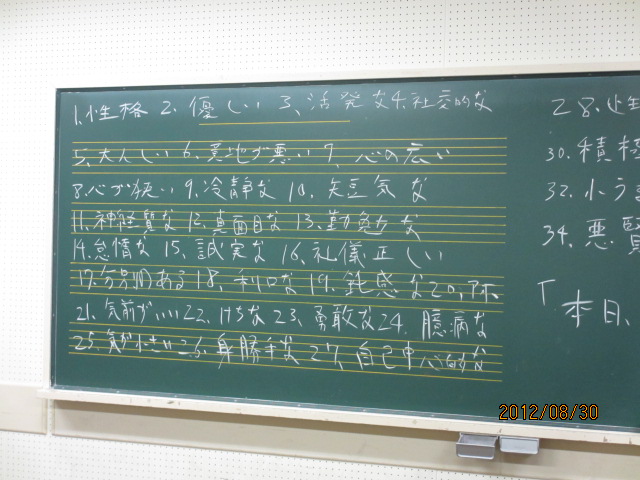 1.性格 2.優しい 3、活発な 4.社交的な
5、大人しい 6、意地が悪い 7、心の広い
8.心が狭い 9.冷静な 10、短気な
11、神経質な 12、真面目な 13、勤勉な
14.怠惰な 15、誠実な 16、礼儀正しい
17.分別のある 18、利口な 19、鈍感な 20,
21、気前がいい 22、けちな 23、勇敢な 24、臆病な
25、気が小さい 26、身勝手な 27、自己中心的な
28、性
30.積極
32、小う
34、悪賢
「本日、
2012/08/30